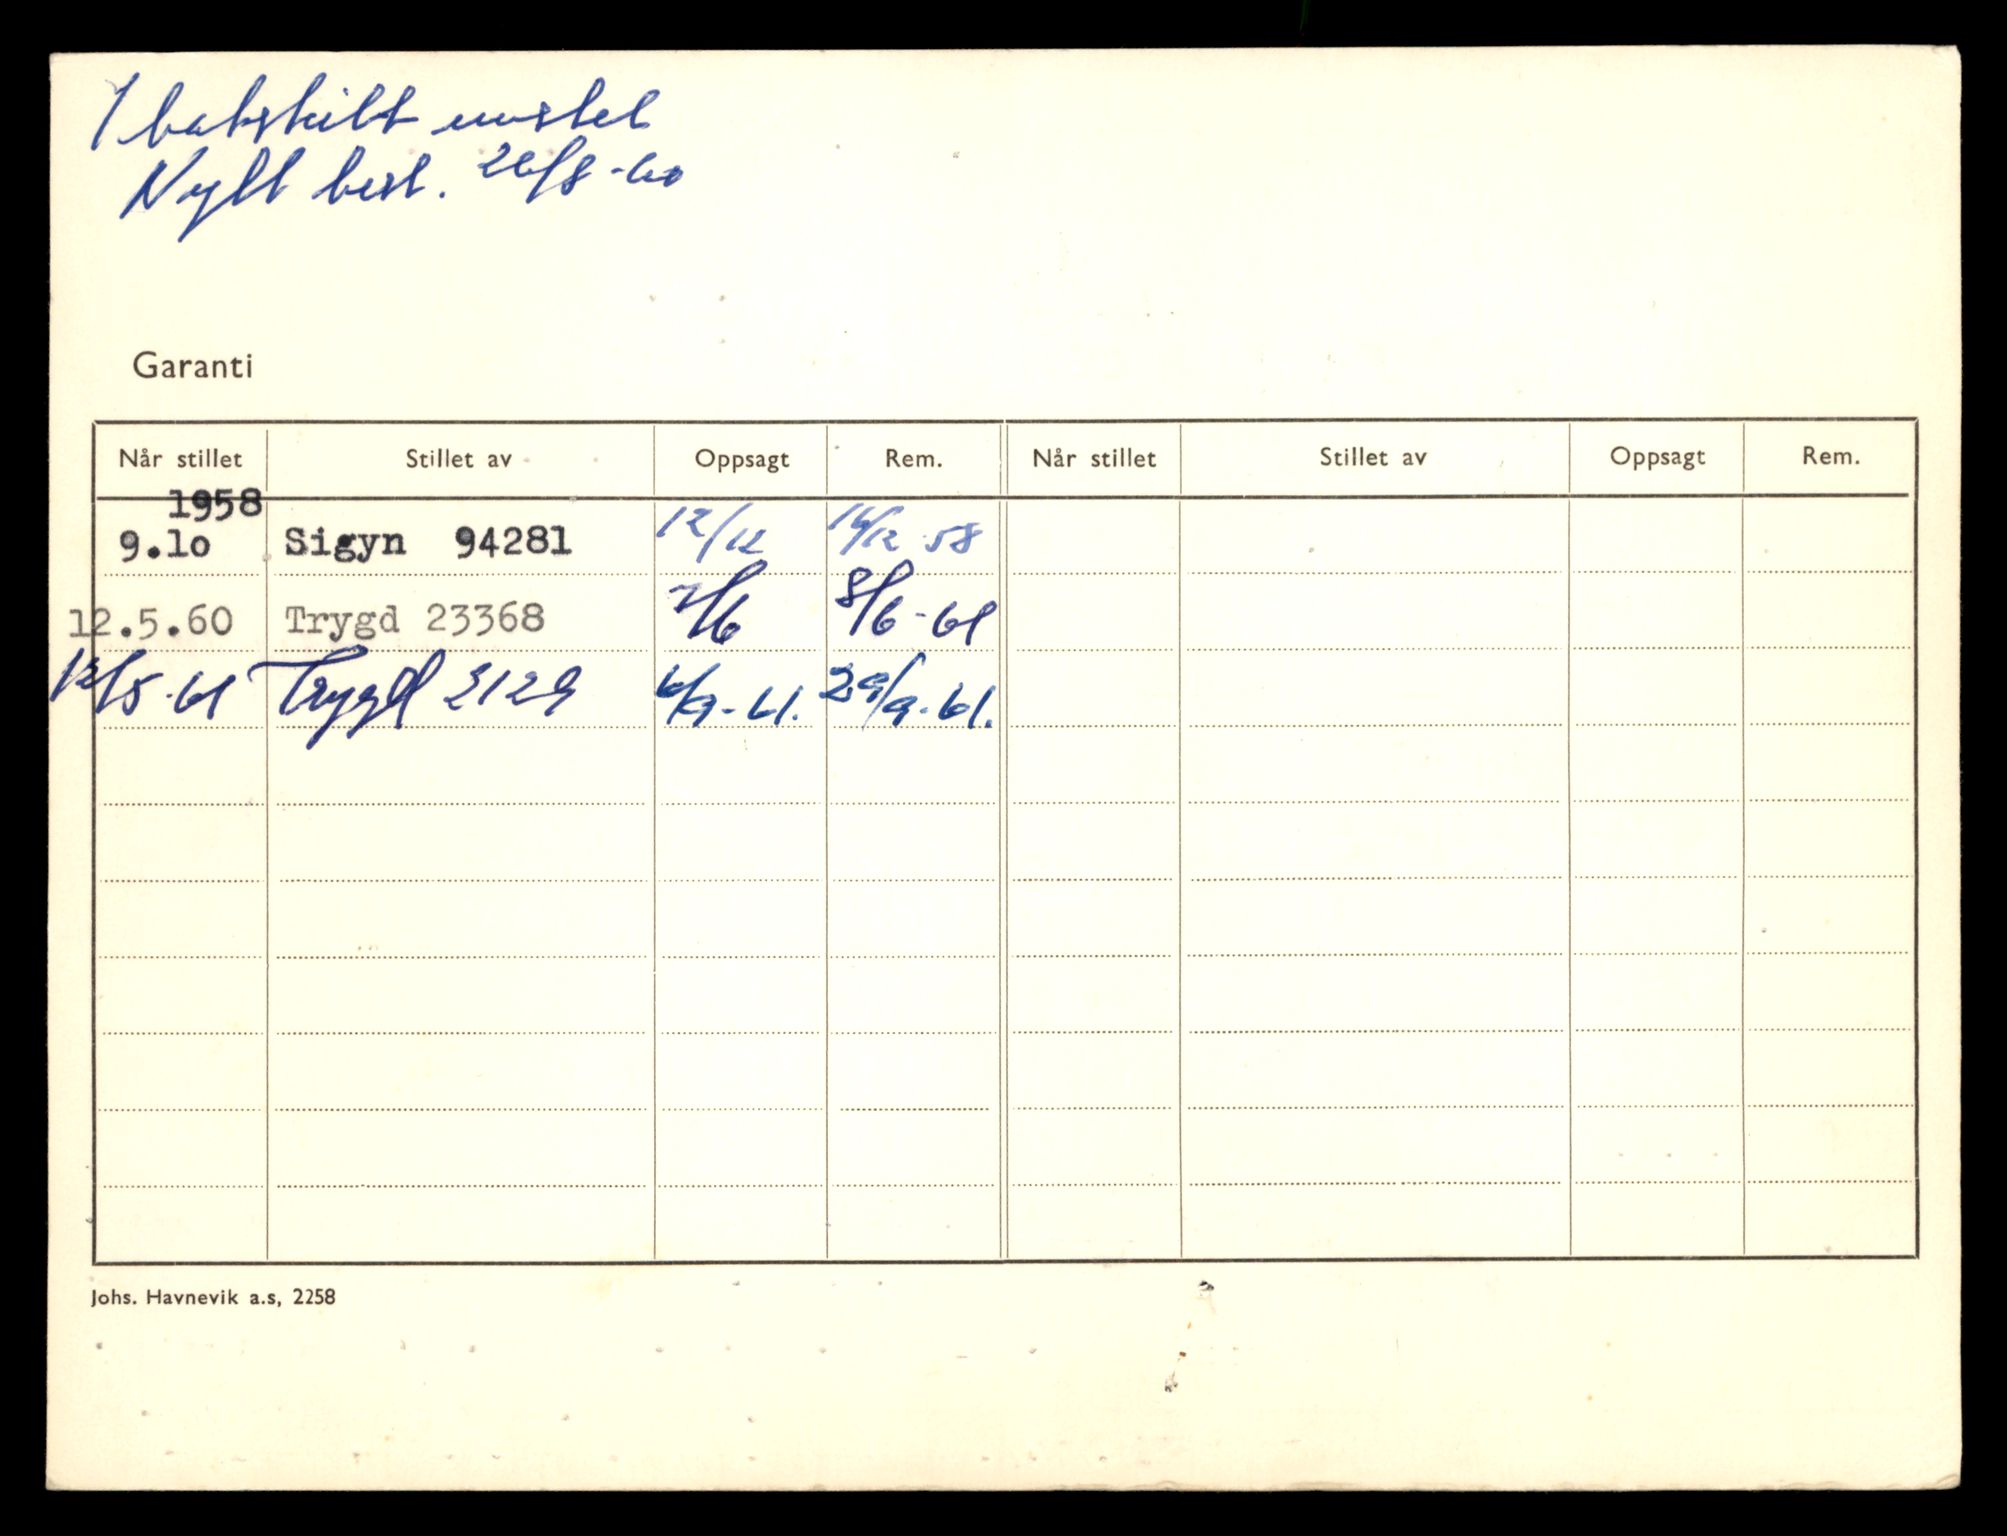 1 bakskilt mistet
Nytt best. 26/8-60
Garanti
Når stillet Stillet av Oppsagt Rem. Når stillet Stillet av Oppsagt Rem.
1958
9.10 Sigyn 94281 12/12 16/12 58
12.5.60 Trygd 23368 7/6 8/6-61
12/5-61 Trygd 3129 6/9-61. 29/9-61.
Johs. Havnevik a.s, 2258